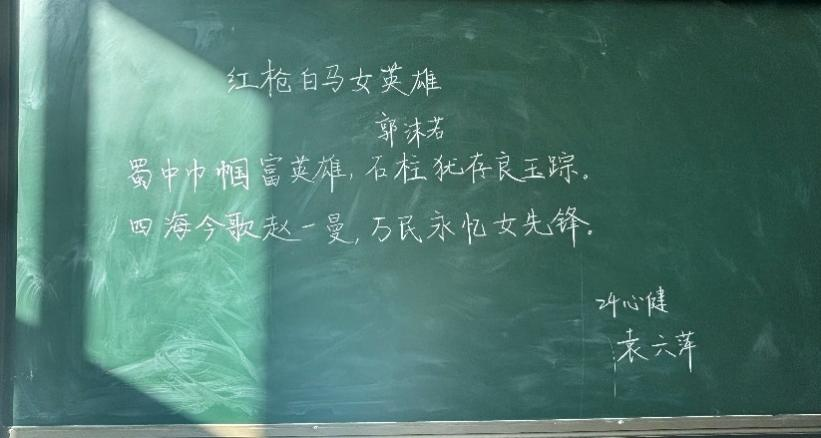 红枪白马女英雄
郭沫若
蜀中巾帼富英雄，石柱犹存良玉踪。
四海今歌赵一曼，万民永忆女先锋。
24心健
袁六萍